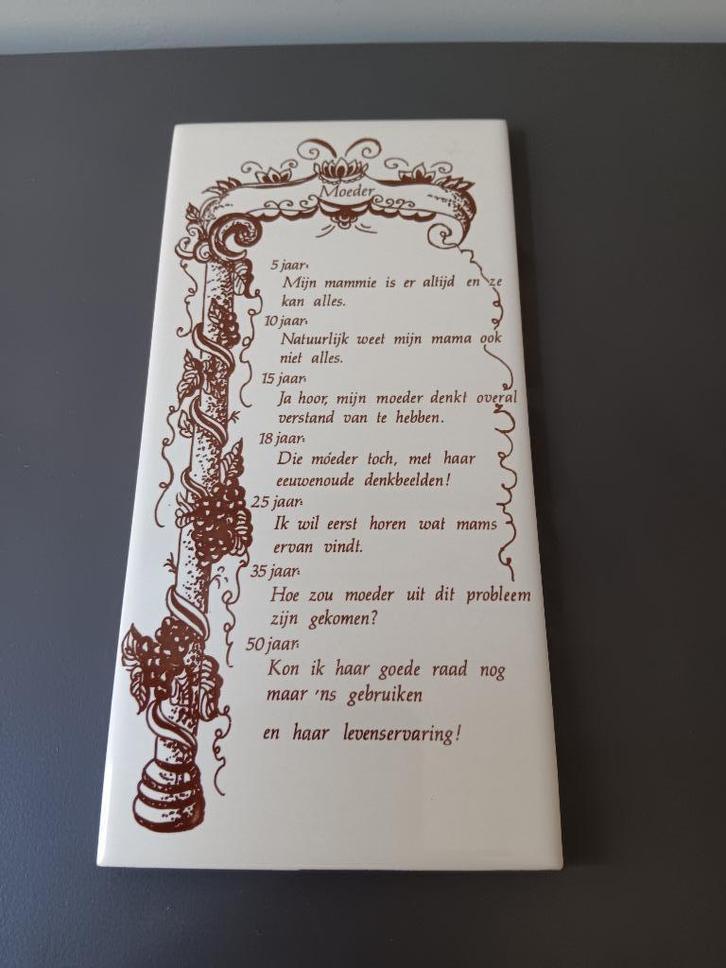 Moeder
5 jaar:
Mijn mammie is er altijd en ze
kan alles.
10 jaar:
Natuurlijk weet mijn mama ook
niet alles.
15 jaar:
Ja hoor, mijn moeder denkt overal
verstand van te hebben.
18 jaar:
Die móeder toch, met haar
eeuwenoude denkbeelden!
25 jaar:
Ik wil eerst horen wat mams
ervan vindt.
35 jaar:
Hoe zou moeder uit dit probleem
zijn gekomen?
50 jaar:
Kon ik haar goede raad nog
maar 'ns gebruiken
en haar levenservaring!